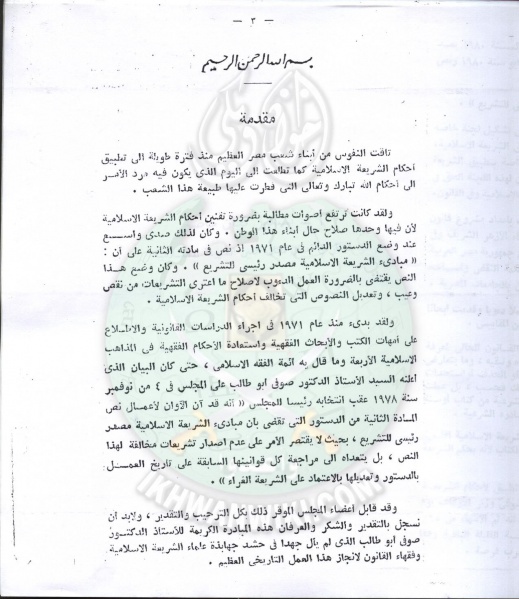 — ٣ —
بسم الله الرحمن الرحيم
مقدمة
تاقت النفوس من أبناء شعب مصر العظيم منذ فترة طويلة الى تطبيق
أحكام الشريعة الاسلامية كما تطلعت الى اليوم الذى يكون فيه مرد الأمر
الى أحكام الله تبارك وتعالى التى فطرت عليها طبيعة هذا الشعب .
ولقد كانت ترتفع أصوات مطالبة بضرورة تقنين أحكام الشريعة الاسلامية
لأن فيها وحدها صلاح حال أبناء هذا الوطن . وكان لذلك صدى واسع
عند وضع الدستور الدائم فى عام ١٩٧١ اذ نص فى مادته الثانية على أن :
« مبادىء الشريعة الاسلامية مصدر رئيسى للتشريع » . وكان وضع هذا
النص يقتضى بالضرورة العمل الدءوب لاصلاح ما اعترى التشريعات من نقص
وعيب ، وتعديل النصوص التى تخالف أحكام الشريعة الاسلامية .
ولقد بدىء منذ عام ١٩٧١ فى اجراء الدراسات القانونية والاطلاع
على أمهات الكتب والأبحاث الفقهية واستعادة الأحكام الفقهية فى المذاهب
الاسلامية الأربعة وما قال به أئمة الفقه الاسلامى ، حتى كان البيان الذى
أعلنه السيد الأستاذ الدكتور صوفى أبو طالب على المجلس فى ٤ من نوفمبر
سنة ١٩٧٨ عقب انتخابه رئيسا للمجلس « انه قد آن الأوان لأعمال نص
المادة الثانية من الدستور التى تقضى بأن مبادىء الشريعة الاسلامية مصدر
رئيسى للتشريع ، بحيث لا يقتصر الأمر على عدم اصدار تشريعات مخالفة لهذا
النص ، بل يتعداه الى مراجعة كل قوانينها السابقة على تاريخ العمل
بالدستور وتعديلها بالاعتماد على الشريعة الغراء » .
وقد قابل أعضاء المجلس الموقر ذلك بكل الترحيب والتقدير ، ولابد أن
نسجل بالتقدير والشكر والعرفان هذه المبادرة الكريمة للأستاذ الدكتور
صوفى أبو طالب الذى لم يأل جهدا فى حشد جهابذة علماء الشريعة الاسلامية
وفقهاء القانون لانجاز هذا العمل التاريخى العظيم .